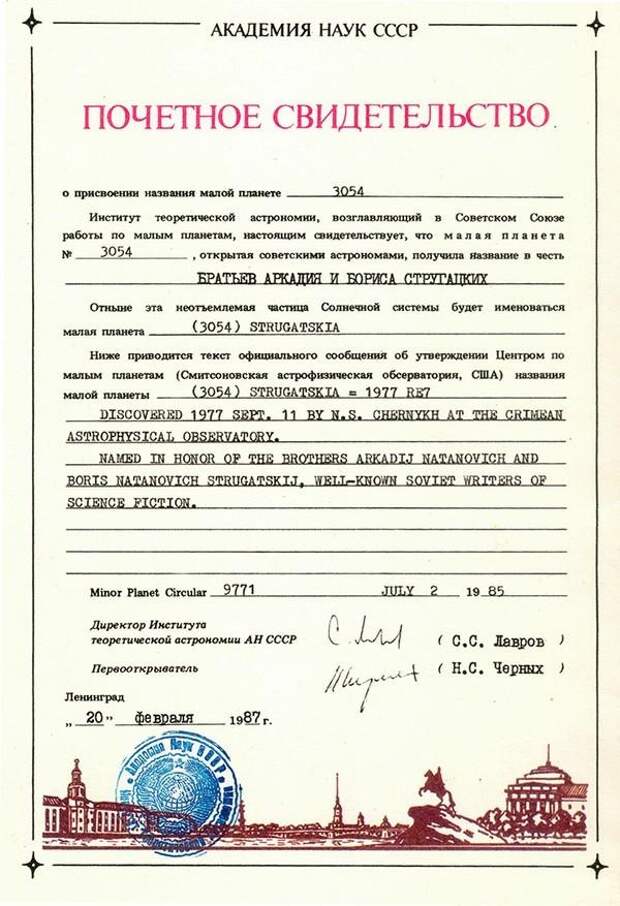 АКАДЕМИЯ НАУК СССР
ПОЧЕТНОЕ СВИДЕТЕЛЬСТВО
о присвоении названия малой планете 3054
Институт теоретической астрономии, возглавляющий в Советском Союзе
работы по малым планетам, настоящим свидетельствует, что малая планета
№ 3054, открытая советскими астрономами, получила название в честь
БРАТЬЕВ АРКАДИЯ И БОРИСА СТРУГАЦКИХ
Отныне эта неотъемлемая частица Солнечной системы будет именоваться
малая планета (3054) STRUGATSKIA
Ниже приводится текст официального сообщения об утверждении Центром по
малым планетам (Смитсоновская астрофизическая обсерватория, США) названия
малой планеты (3054) STRUGATSKIA = 1977 RE7
DISCOVERED 1977 SEPT. 11 BY N.S. CHERNYKH AT THE CRIMEAN
ASTROPHYSICAL OBSERVATORY.
NAMED IN HONOR OF THE BROTHERS ARKADIJ NATANOVICH AND
BORIS NATANOVICH STRUGATSKIJ, WELL-KNOWN SOVIET WRITERS OF
SCIENCE FICTION.
Minor Planet Circular 9771 JULY 2 1985
Директор Института
теоретической астрономии АН СССР (С.С. Лавров)
Первооткрыватель (Н.С. Черных)
Ленинград
„20" февраля 1987 г.
Академия Наук СССР